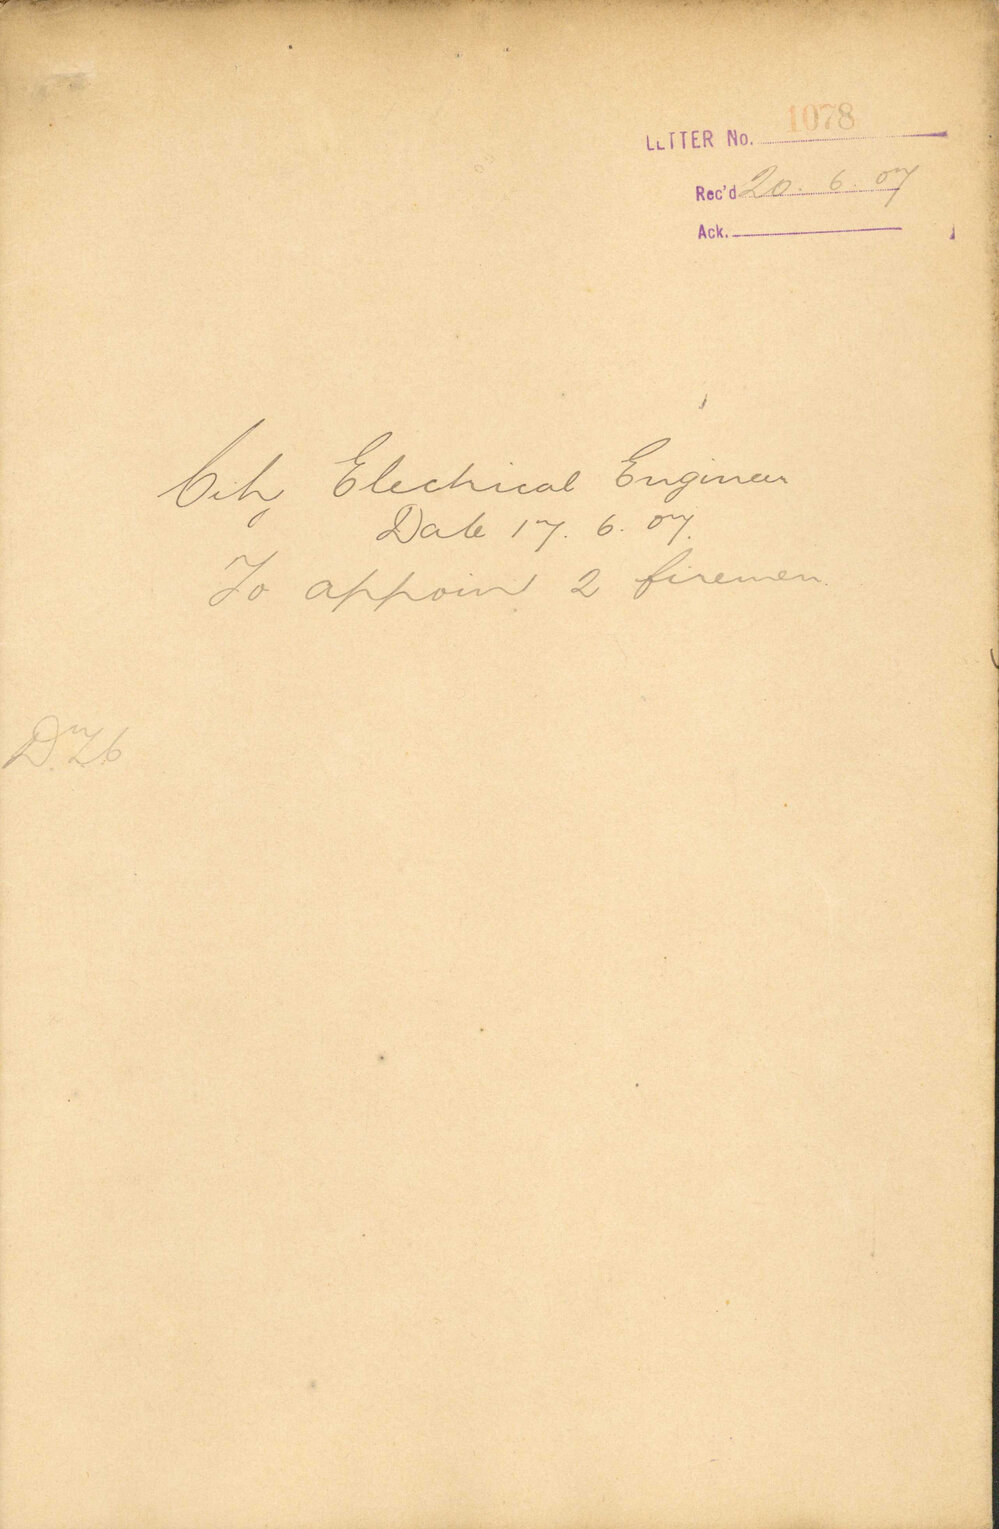 LETTER No. 1078
Rec'd 20. 6. 07
Ack.
City Electrical Engineer
Date 17. 6. 07.
To appoint 2 firemen.